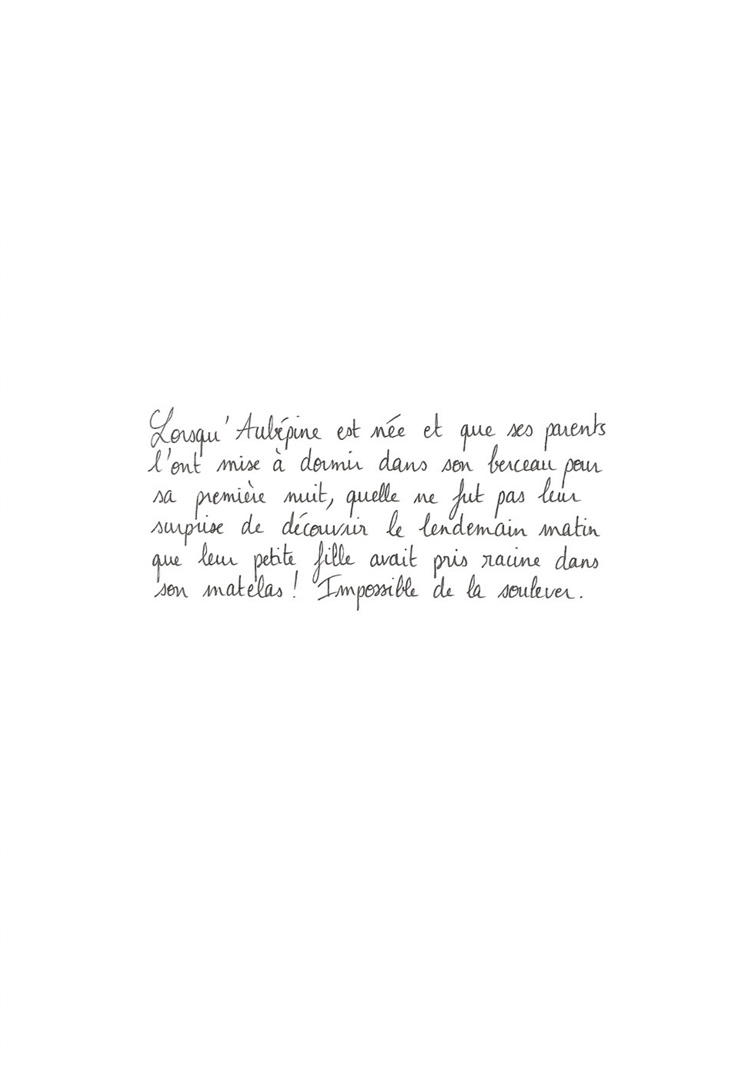 Lorsqu'Aubépine est née et que ses parents
l'ont mise à dormir dans son berceau pour
sa première nuit, quelle ne fut pas leur
surprise de découvrir le lendemain matin
que leur petite fille avait pris racine dans
son matelas ! Impossible de la soulever.